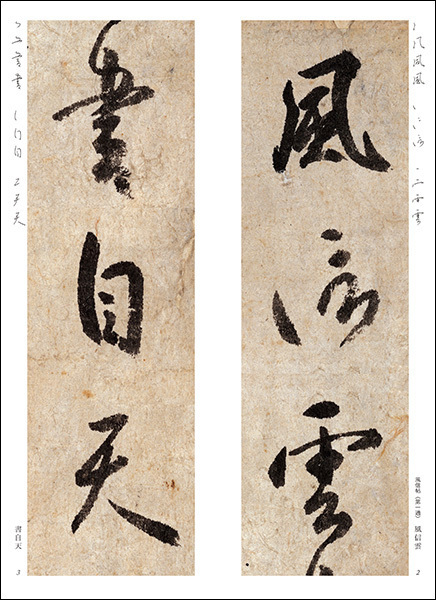 風信雲
風信帖(第一通) 風信雲
2
書自天
書自天
3